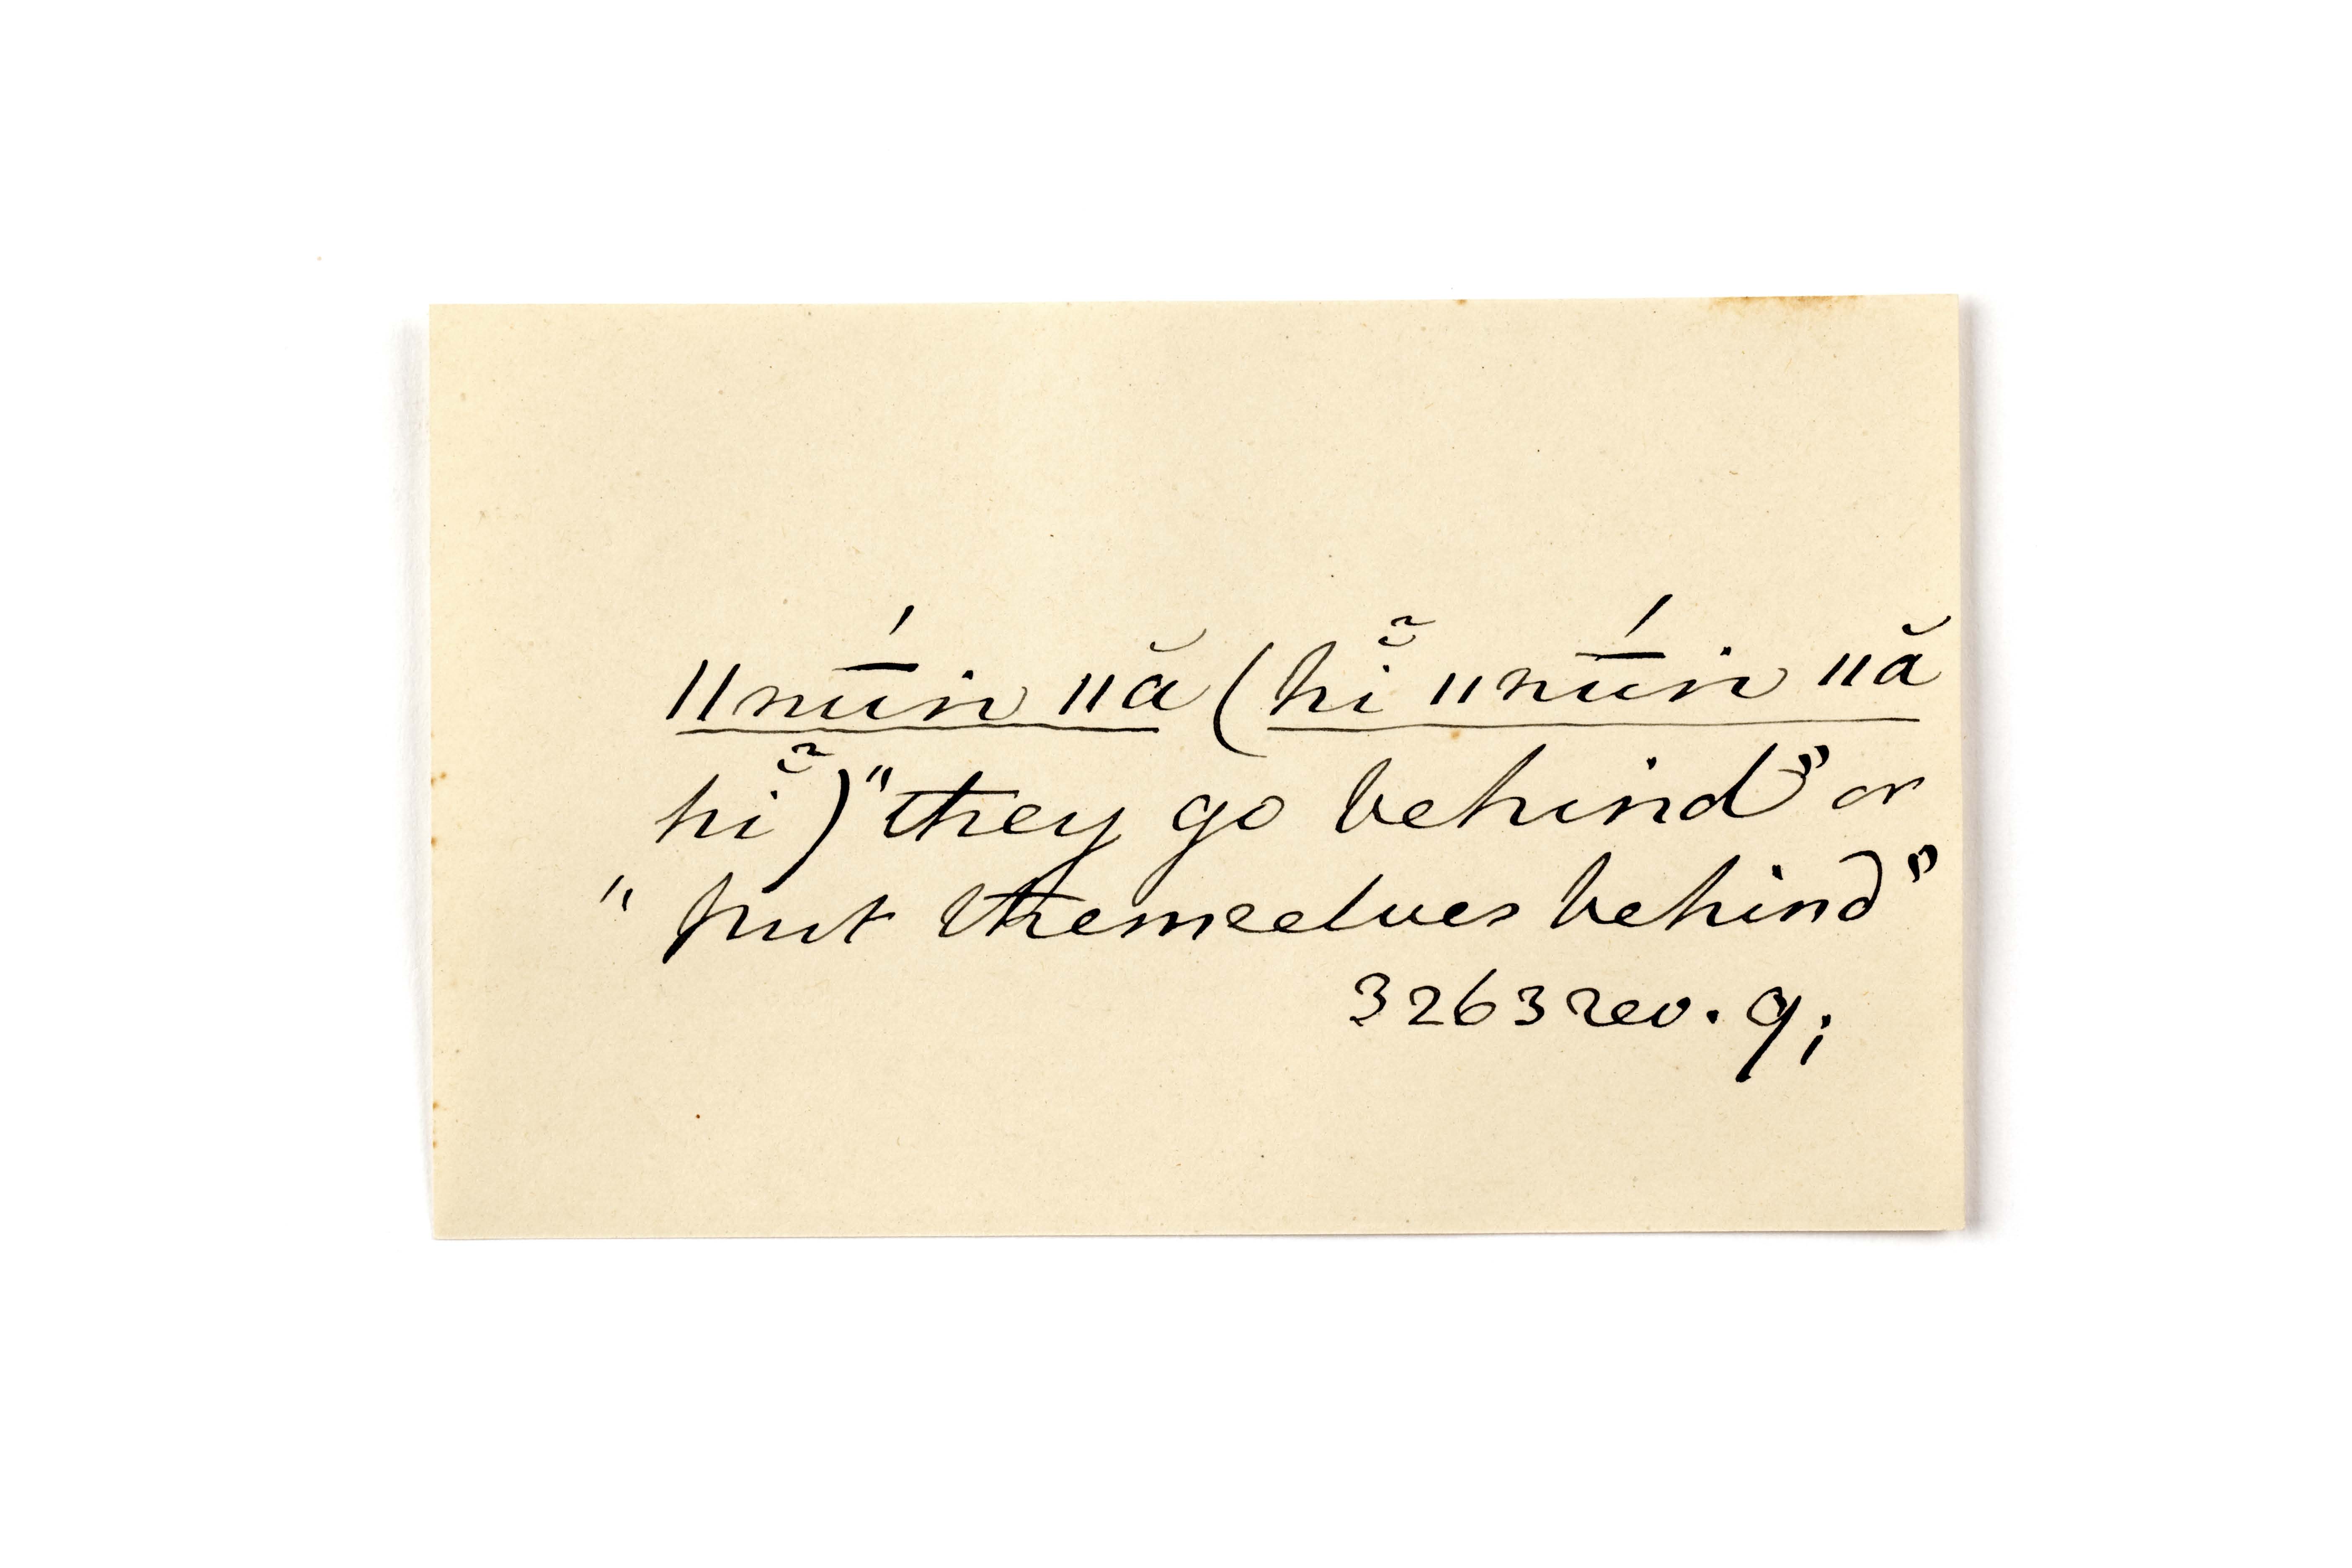 ǁnū́in ǁă (hĭ̃ ǁnū́in ǁă
hĭ̃) "they go behind" or
"put themselves behind"
3263 rev. q;